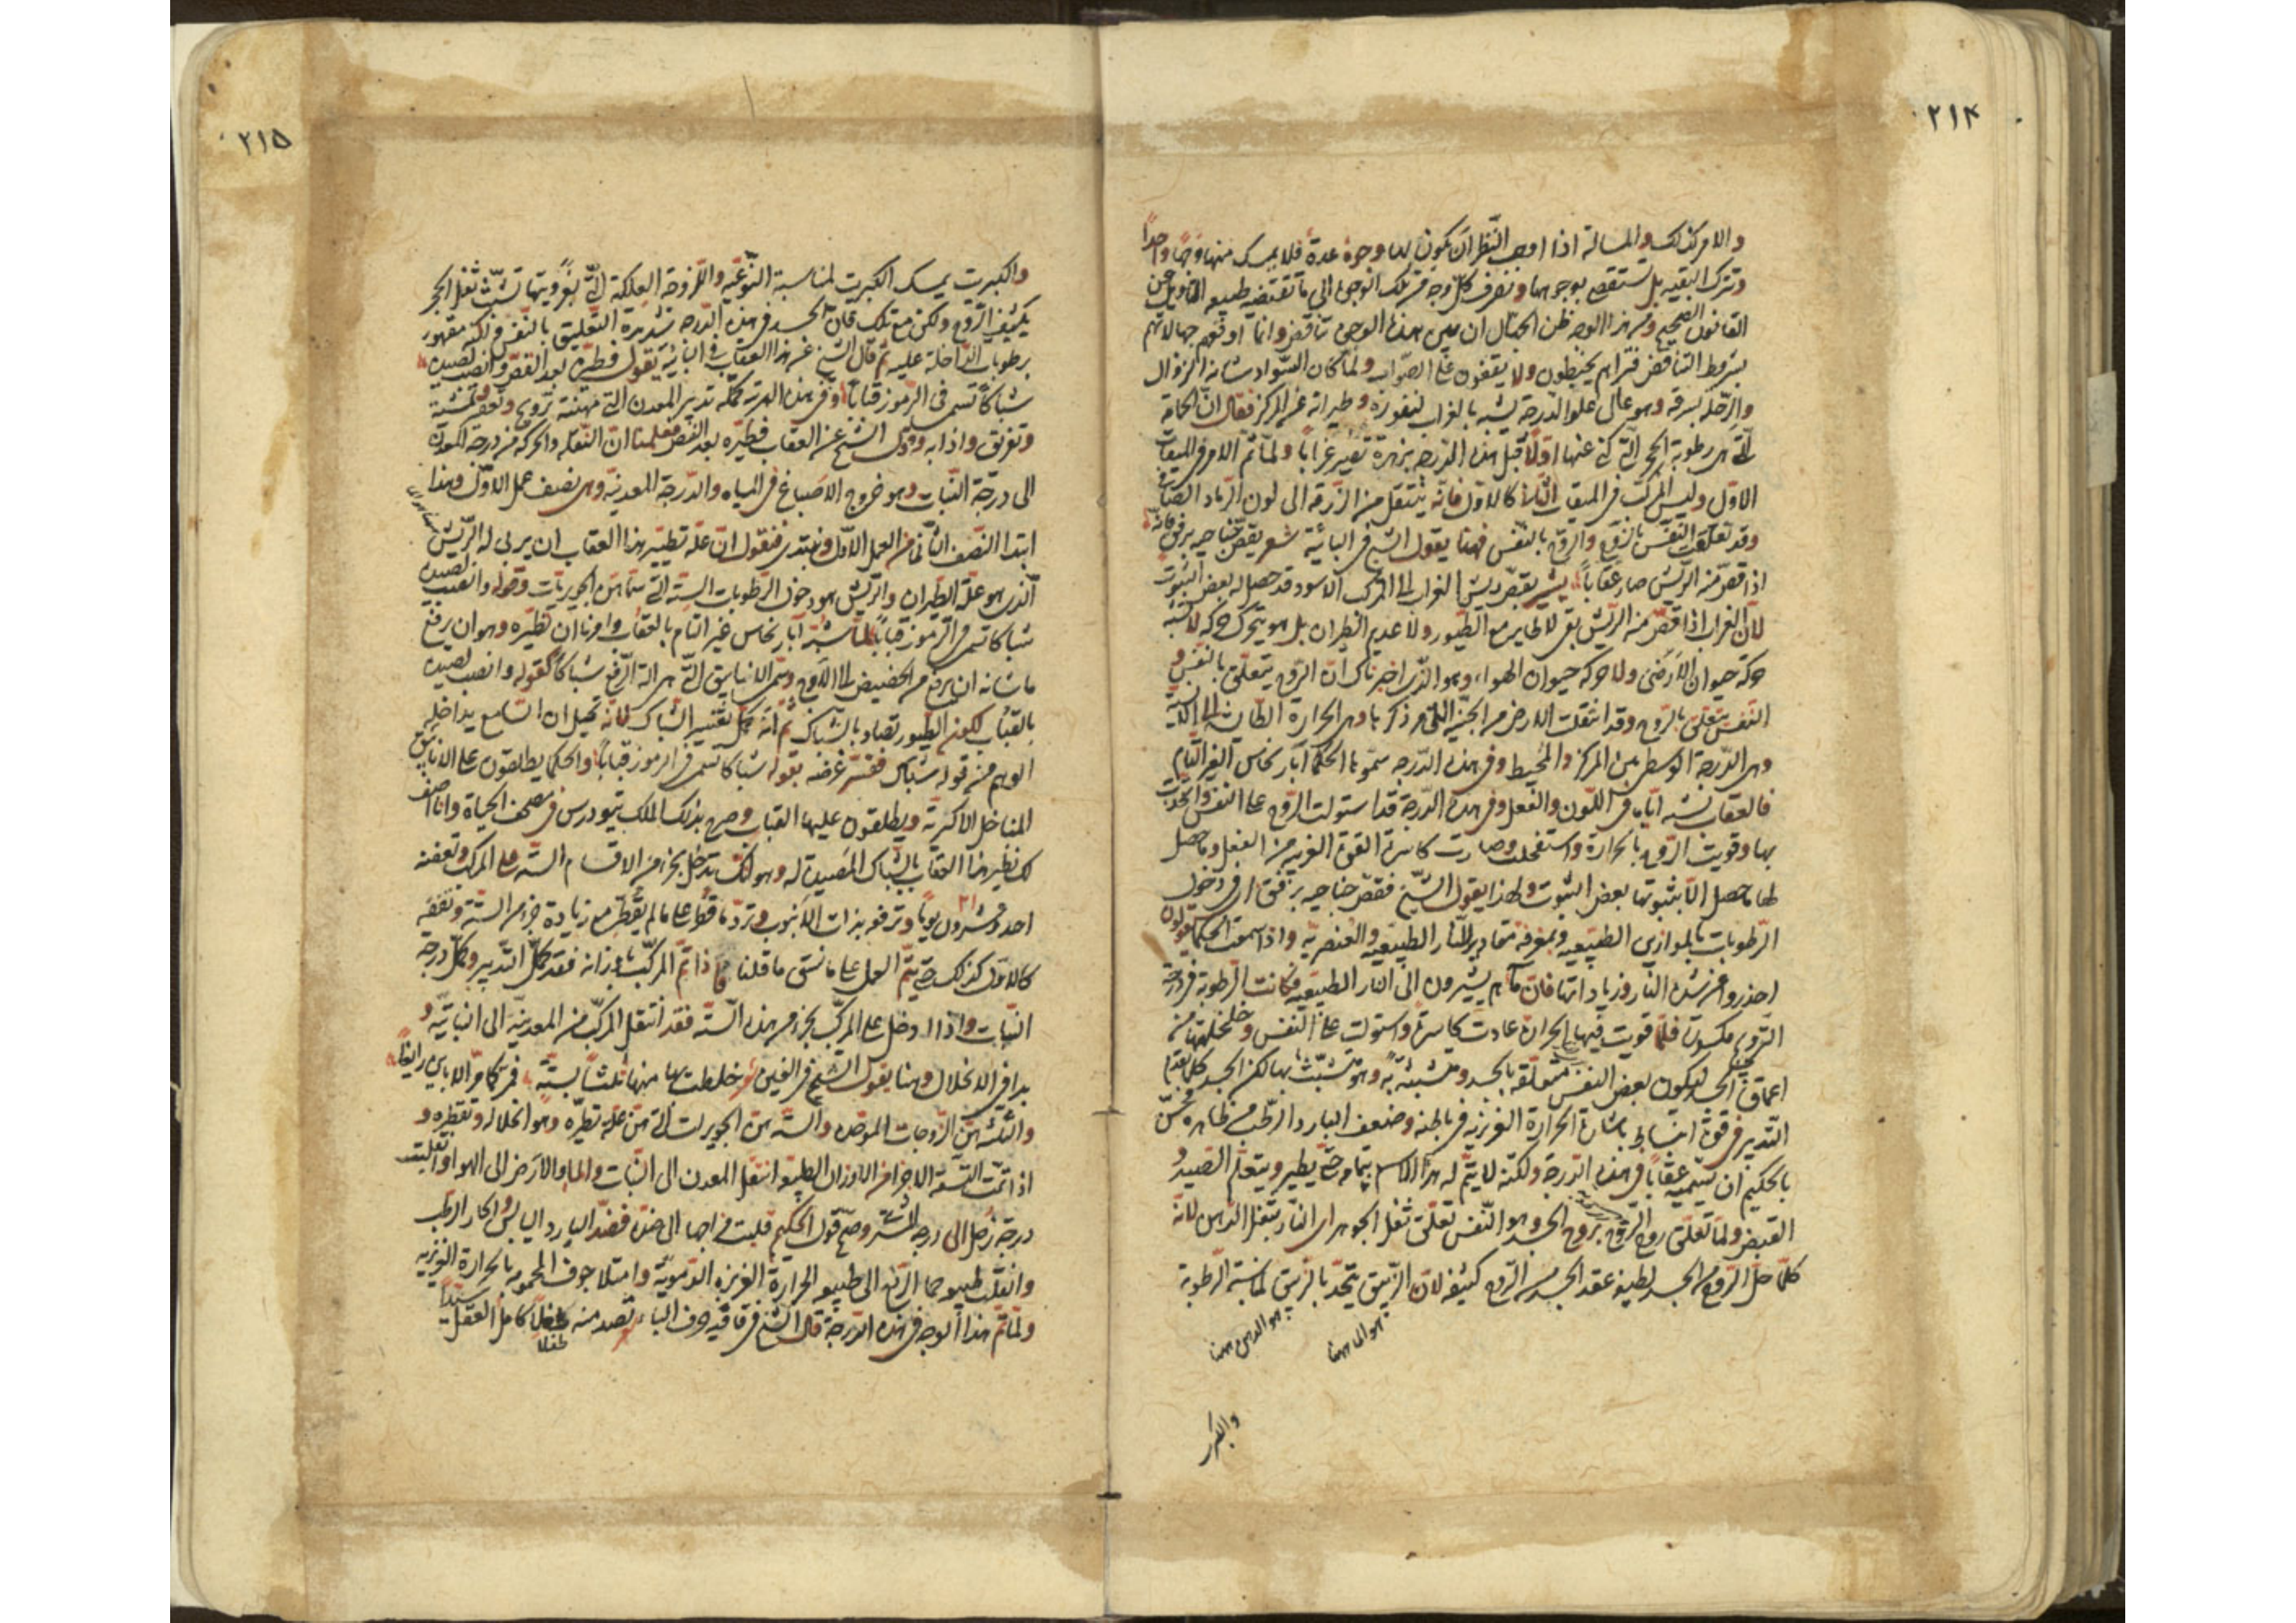 ٢١٤
والامر كذلك والمسالة اذا اوجب النظر ان يكون لها وجوه عدة فلا يمسك منها وجها واحدا
وتترك البقيه بل يستقصى بوجوهها وتصرف كل وجه من تلك الوجوه الى ما تقتضيه طبيعه التاويل عن
القانون الصحيح ومن هذا الوجه ظن الجهال ان بين هذه الوجوه تناقض وانما اوقعهم جهالاتهم
بشروط التناقض فتراهم يخبطون ولا يقفون على الصواب ولما كان السواد شانه الزوال
والرحلة بسرقه وهو عال علو الدرجة يشبه بالغراب لنفوره وطيرانه عن المركز فقال ان الحمامة
التي هي رطوبة الحجر التي كنى عنها اولا قبل هذه الدرجه بزهرة تصير غرابا ولما تم الامر في الميقات
الاول وليس المركب في الميقات الثانى كالاول فانه ينتقل من الزرقه الى لون الرماد
وقد تعلقت النفس بالروح والروح بالنفس فهنا يقول الشيخ في البائية شعر يقص جناحيه برفق فانه
اذا قص منه الريش صار عقابا يشير بقص ريش الغراب الى المركب الاسود قد حصل له بعض الثبوت
لان الغراب اذا قص منه الريش بقى لا طاير مع الطيور ولا عديم الطيران بل هو يتحرك حركه لا تشبه
حركة حيوان الارضى ولا حركه حيوان الهواء وهو الذى اخبرناك ان الروح يتعلق بالنفس و
النفس يتعلق بالروح وقد انتقلت الارض من الجنبة التى مر ذكرها وهى الحرارة
وهى الدرجة الوسطى بين المركز والمحيط وفى هذه الدرجه سموها الحكما آبار نحاس الغير التام
فالعقاب يشبه اياه فى اللون والفعل وفى هذه الدرجة قد استولت الروح على النفس واتحدت
بها وقويت الروح بالحرارة واستفحلت وصارت كاسرة القوة الغريبه من الفعل وحصل
لها ما حصل الا بثبوتها بعض الثبوت ولهذا يقول الشيخ فقص جناحيه برفق اى فى دخول
الرطوبات بالموازين الطبيعيه وبمعرفة مقادير النار الطبيعيه والعنصريه واذا سمعت الحكما يقولون
احذروا من شدة النار وزياداتها فان ما هم يشيرون الى النار الطبيعيه فكانت الرطوبة فى درجة
الروح مكسورة فلما قويت فيها الحرارة عادت كاسرة واستولت على النفس وخلخلتها من
اعماق الجسد لتكون بعض النفس متعلقه بالجسد ومتشبثة به وهو متشبث بها لكن الجسد كلما تقدم
التدبير فى قوة انبساط باشارة الحرارة الغريزية فى باطنه وضعف البارد الرطب من ظاهره فحسن
بالحكيم ان يسميه عقابا فى هذه الدرجة ولكنه لا يتم له هذا الاسم بتمامه حتى يطير ويتعلم الصيد و
القبض ولما تعلق روح الروح بروح الجسد وهو النفس تعلق ثفل الحجر اى النار بثفل الراس لانه
كلما حل الروح من الجسد لطيفه عقد الجسد من الروح كثيفه لان الزيبق يتحد بالزيبق لمناسبة الرطوبة
٢١٥
والكبريت يمسك الكبريت لمناسبة النوعية واللزوجة العلكة التي بغرويتها تشبث ثفل الحجر
بكثيف الروح ولكن مع تلك فان الجسد فى هذه الدرجه شديدة التعليق بالنفس ولكنه مقهور
برطوبات الداخلة عليه ثم قال الشيخ عن هذا العقاب فى البائية بقوله فطيره بعد القص وانصب لصيده
شباكا تسمى فى الرموز قبابا وفى هذه المرتبة كملة تدبير المعدن التى مهنته تزويج وتعفين وتمشية
وتفريق واذابه وقول الشيخ عن العقاب فطيره بعد القص معلمنا ان النقله والحركه من درجة المعدن
الى درجة النبات وهو خروج الاصباغ فى المياه والدرجة المعدنيه وهى نصف عمل الاول وهذا
ابتدا النصف الثانى من العمل الاول ونبتدى فنقول ان علة تطيير هذا العقاب ان يربى له الريش
الذى هو علة الطيران والريش هو دخول الرطوبات الستة التى سماهن الجويريات وقوله وانصب لصيده
شباكا تسمى فى الرموز قبابا لما شبه آبار نحاس غير التام بالعقاب وامرنا ان نطيره وهو ان يرفع
ما شانه ان يرتفع من الحضيض الى الاوج وسمى الانابيق التى هى الة الرفع شباكا بقوله وانصب لصيده
بالقباب لكون الطيور تصاد بالشباك ثم انه كمل تفسير الشباك لانه تخيل ان السامع يداخله
الوهم من قوله شباك ففسر غرضه بقوله شباكا تسمى فى الرموز قبابا والحكما يطلقون على الانابيق
المناخل الاكبرية ويطلقون عليها القباب وصرح بذلك الملك تيودرس فى مصحف الحياة وانا اصف
لك تطيير هذا العقاب بالشباك المصيدة له وهو انك تدخل بجزء من الاقسام الستة على المركب وتعفنه
احد وعشرون يوما وترفعه بذات الانبوب وترد ما قطر على ما لم يقطر مع زيادة جزء من الستة وتعفنه
كالاول كذلك حتى يتم العمل على ما نسق ما قلنا فاذا تم المركب باوزانه فقد كمل التدبير وكمل درجة
النبات واذا دخل على المركب بجزء من هذه الستة فقد انتقل المركب من المعدنيه الى النباتيه و
بدا فى الانحلال وهنا يقول الشيخ فى الغين خلطت بها منها ثلثا بستة
والثلثة هن الزوجات الموحدة والستة هن الجويريات التى هن علة تطيره وهو انحلاله وتقطيره و
اذا تمت التسعة الاجزا من الاوزان الطبيعه انتقل المعدن الى النبات والما والارض الى الهوا وانقلبت
درجة زحل الى درجة المشترى وصح قول الحكيم قلبت مزاجها الى ضده فضد البارد اليابس والحار الرطب
وانقلب طبيعه حما الربع الى طبيعه الحرارة الغريزيه الدمويه وامتلا جوف المحموم بالحرارة الغريزيه
ولما تم هذا الوجه فى هذه الدرجة قال الشيخ فى قافيه حرف الباء تصد منه طفلا كامل العقل سيدا
طفلا